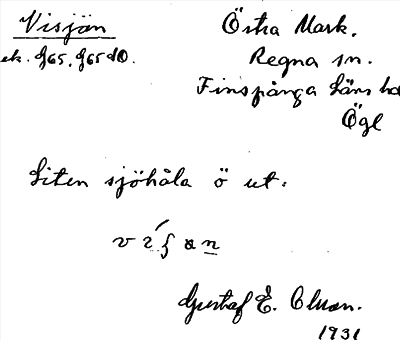 Visjön Östra Mark.
ek. 965, 965 d0 Regna sn.
Finspånga läns hd
Ögl
Liten sjöhåla ö ut.
Gustaf E. Clusn.
1931